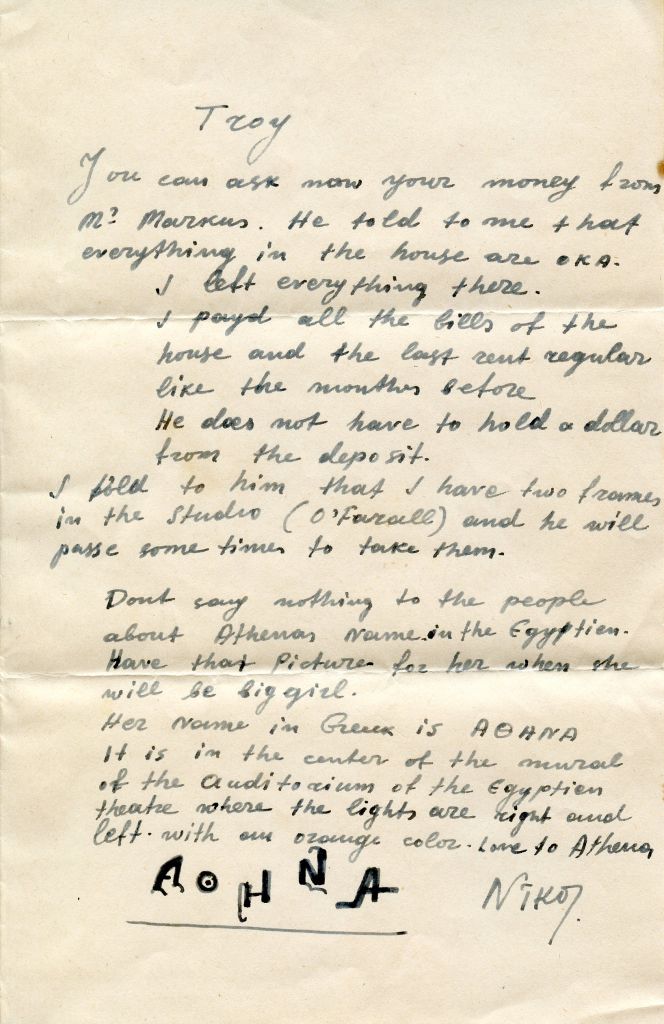 Troy
You can ask now your money from
Mr Markus. He told to me that
everything in the house are OKA.
I left everything there.
I payd all the bills of the
house and the last rent regular
like the monthes before
He does not have to hold a dollar
from the deposit.
I told to him that I have two frames
in the Studio (O'Farall) and he will
passe some times to take them.
Dont say nothing to the people
about Athenas Name in the Egyptien.
Have that Picture for her when she
will be big girl.
Her Name in Greek is AΘANA
It is in the center of the mural
of the Auditorium of the Egyptien
theatre where the lights are right and
left. with an orange color. Love to Athena
AΘHNA
Nikos